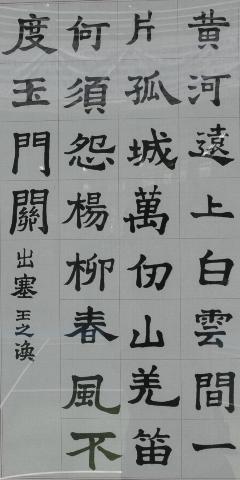 黄河遠上白雲間一
片孤城萬仞山羌笛
何須怨楊柳春風不
度玉門關
出塞王之渙